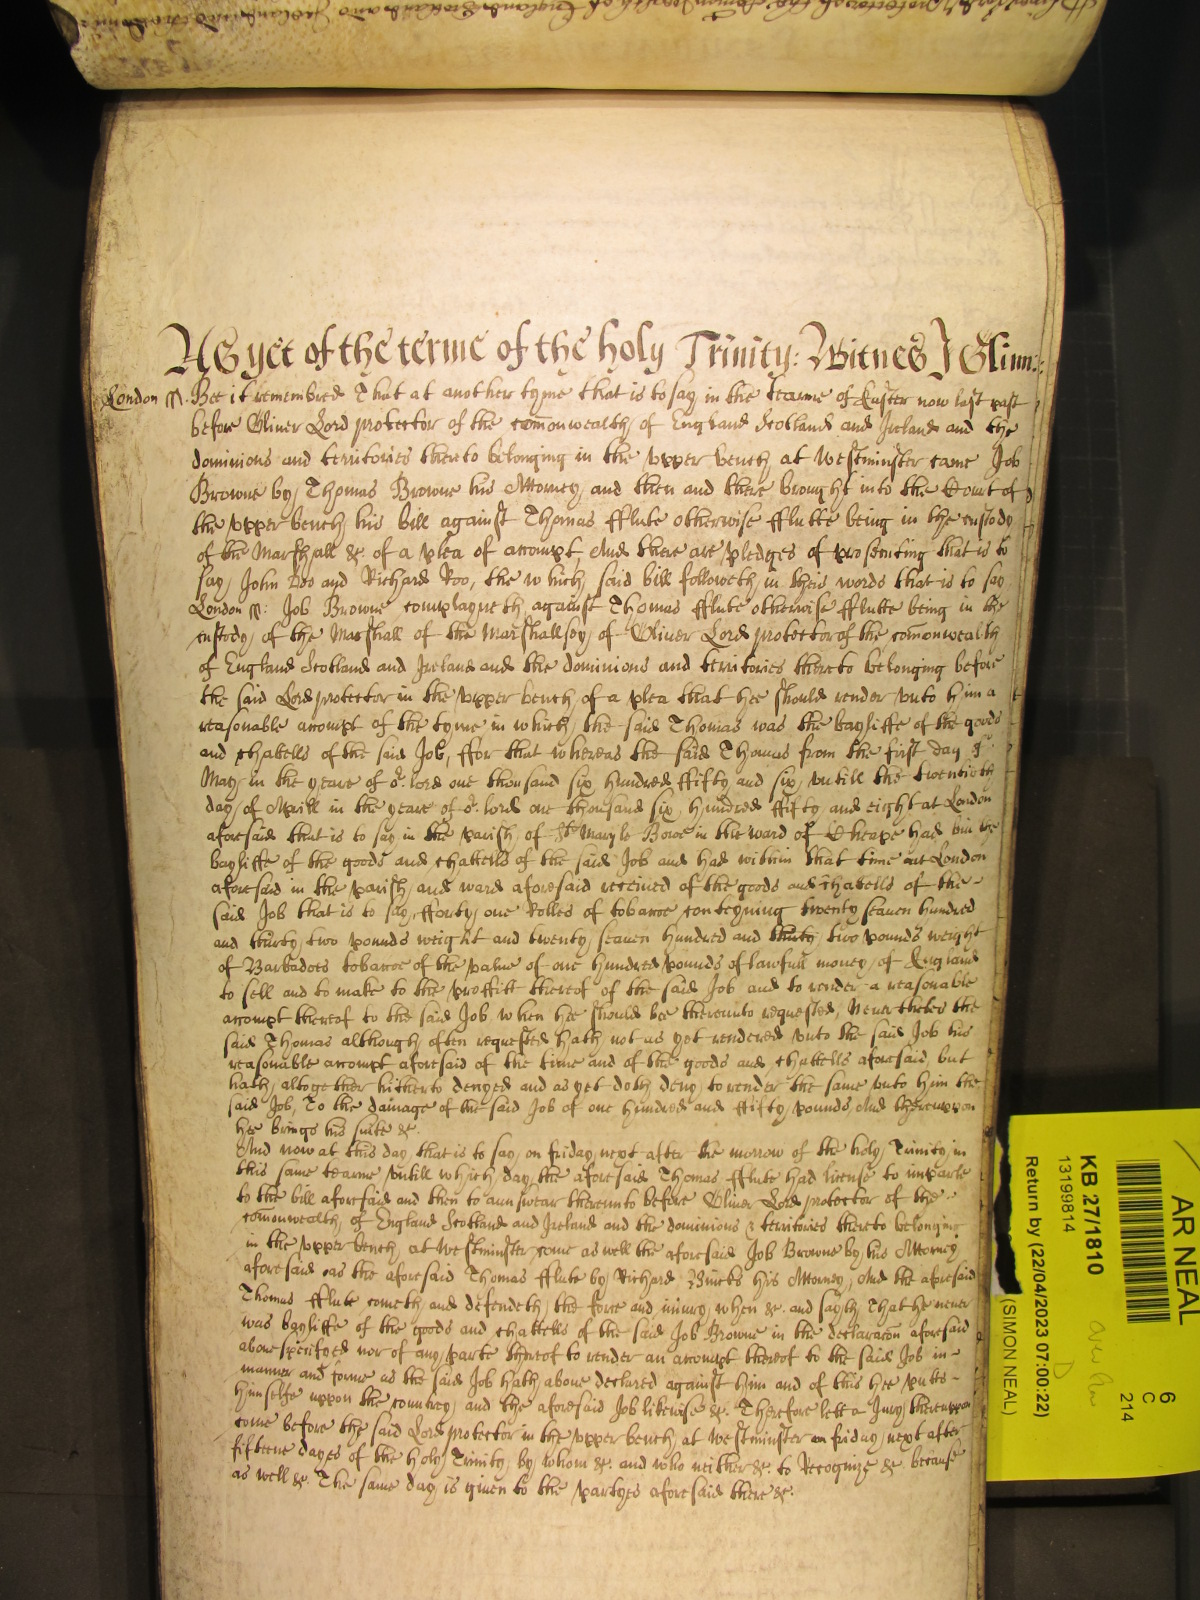 Lord Protector of the Comonwealth of England Scotland and Ireland and the dominions
AS yet of the terme of the holy Trinity: Witnes J Glinn:
London ss: Bee it remembred That at another tyme that is to say in the tearme of Easter now last past
before Oliver Lord protector of the comonwealth of England Scotland and Ireland and the
dominions and territories thereto belonging in the vpper bench at Westminster came Job
Browne by Thomas Browne his Attorney and then and there brought into the Court of
the vpper bench his bill against Thomas fflute otherwise fflutte being in the custody
of the Marshall &c. of a plea of accompt And there are pledges of prosecuting that is to
say John Doo and Richard Roo, the which said bill followeth in theis words that is to say
London ss: Job Browne complayneth against Thomas fflute otherwise fflutte being in the
custody of the Marshall of the Marshallsey of Oliver Lord protector of the comonwealth
of England Scotland and Ireland and the dominions and territories thereto belonging before
the said Lord protector in the vpper bench of a plea that hee should render vnto him a
reasonable accompt of the tyme in which the said Thomas was the bayliffe of the goods
and chattells of the said Job, ffor that whereas the said Thomas from the first day of
May in the yeare of or. lord one thousand six hundred ffifty and six, vntill the twentieth
day of Aprill in the yeare of or. lord one thousand six hundred ffifty and eight at London
aforesaid that is to say in the parish of St Mary le Bowe in the ward of Cheape had bin the
bayliffe of the goods and chattells of the said Job and had within that time att London
aforesaid in the parish and ward aforesaid received of the goods and chattells of the
said Job that is to say fforty one Rolles of tobaccoe conteyning twenty seaven hundred
and thirty two pounds weight and twenty seaven hundred and thirty two pounds weight
of Barbadoes tobaccoe of the value of one hundred pounds of lawfull money of England
to sell and to make to the proffitt thereof of the said Job and to render a reasonable
accompt thereof to the said Job when hee should bee thereunto requested, Neverthelesse the
said Thomas although often requested hath not as yet rendered vnto the said Job his
reasonable accompt aforesaid of the time and of the goods and chattells aforesaid, but
hath altogether hitherto denyed and as yet doth deny to render the same vnto him the
said Job, To the damage of the said Job of one hundred and ffifty pounds, And thereuppon
hee brings his suite &c.
And now at this day that is to say on friday next after the morrow of the holy Trinity in
this same tearme vntill which day the aforesaid Thomas fflute had license to imparle
to the bill aforesaid and then to aunswear thereunto before Oliver Lord protector of the
comonwealth of England Scotland and Ireland and the dominions & territories thereto belonging
in the vpper bench at Westminster come as well the aforesaid Job Browne by his Attorney
aforesaid as the aforesaid Thomas fflute by Richard Bucks his Attorney, And the aforesaid
Thomas fflute cometh and defendeth the force and iniury when &c. and sayth That he never
was bayliffe of the goods and chattells of the said Job Browne in the declaracon aforesaid
above specifyed nor of any parte thereof to render an accompt thereof to the said Job in
manner and forme as the said Job hath above declared against him and of this hee putts
himselfe uppon the countrey and the aforesaid Job likewise &c. Therefore lett a Jury thereuppon
come before the said Lord protector in the vpper bench at Westminster on friday next after
fifteene dayes of the Holy Trinity by whom &c. and who neither &c. to Recognize &c because
as well &c. The same day is given to the partyes aforesaid there &c.
AR NEAL
6
C
214
KB 27/1810
13199814
Return by (22/04/2023 07:00:22)
(SIMON NEAL)
D